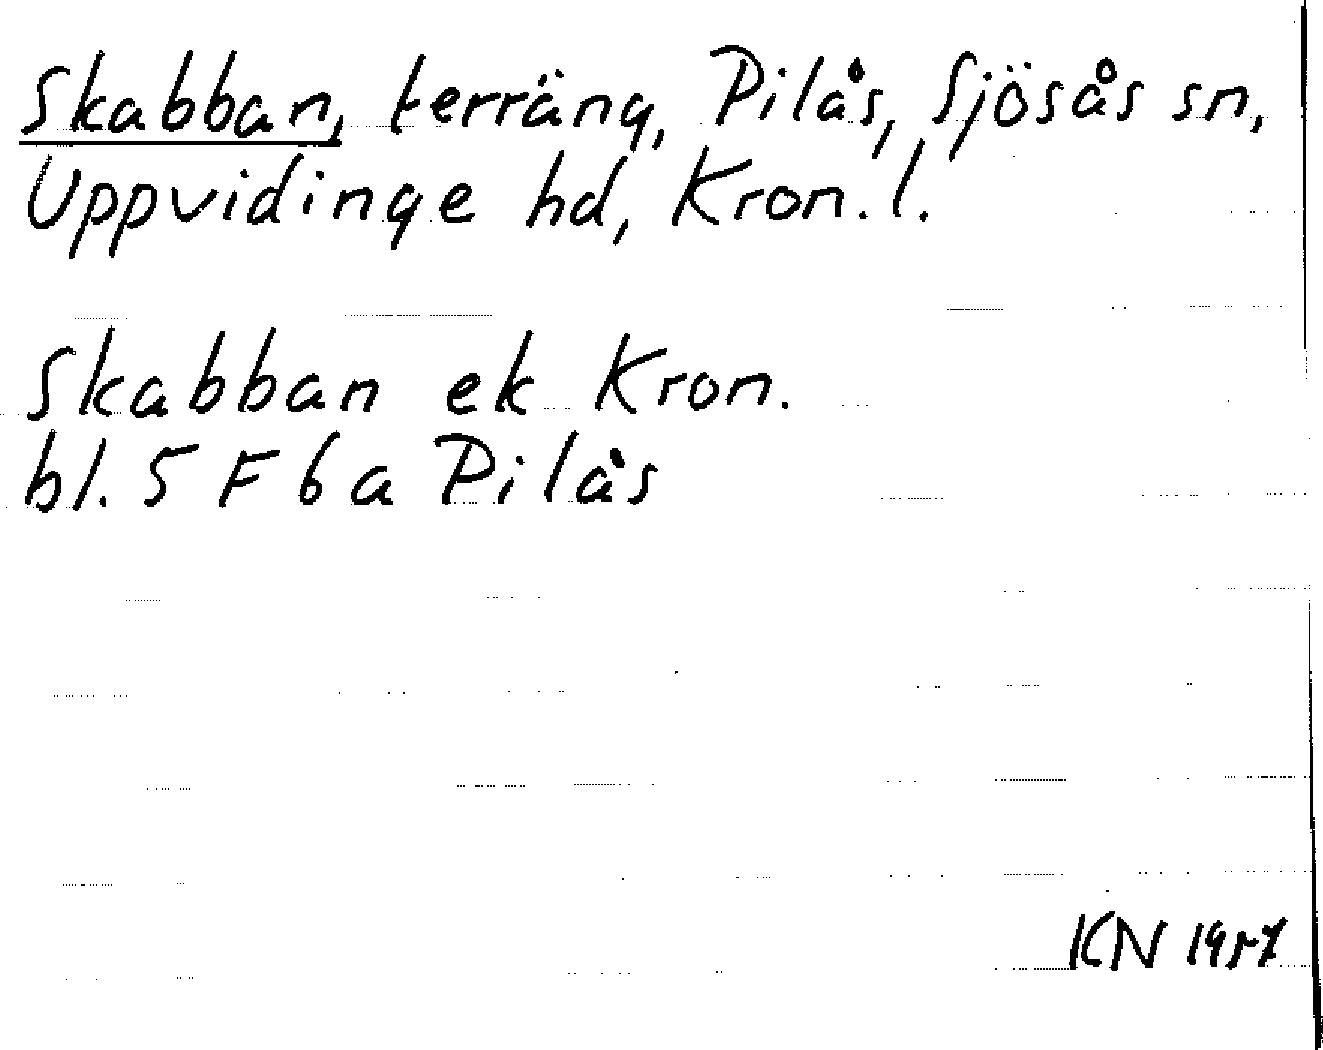 Skabban, terräng, Pilås, Sjösås sn,
Uppvidinge hd, Kron. l.
Skabban ek Kron.
bl. 5 F 6 a Pilås
KN 1957